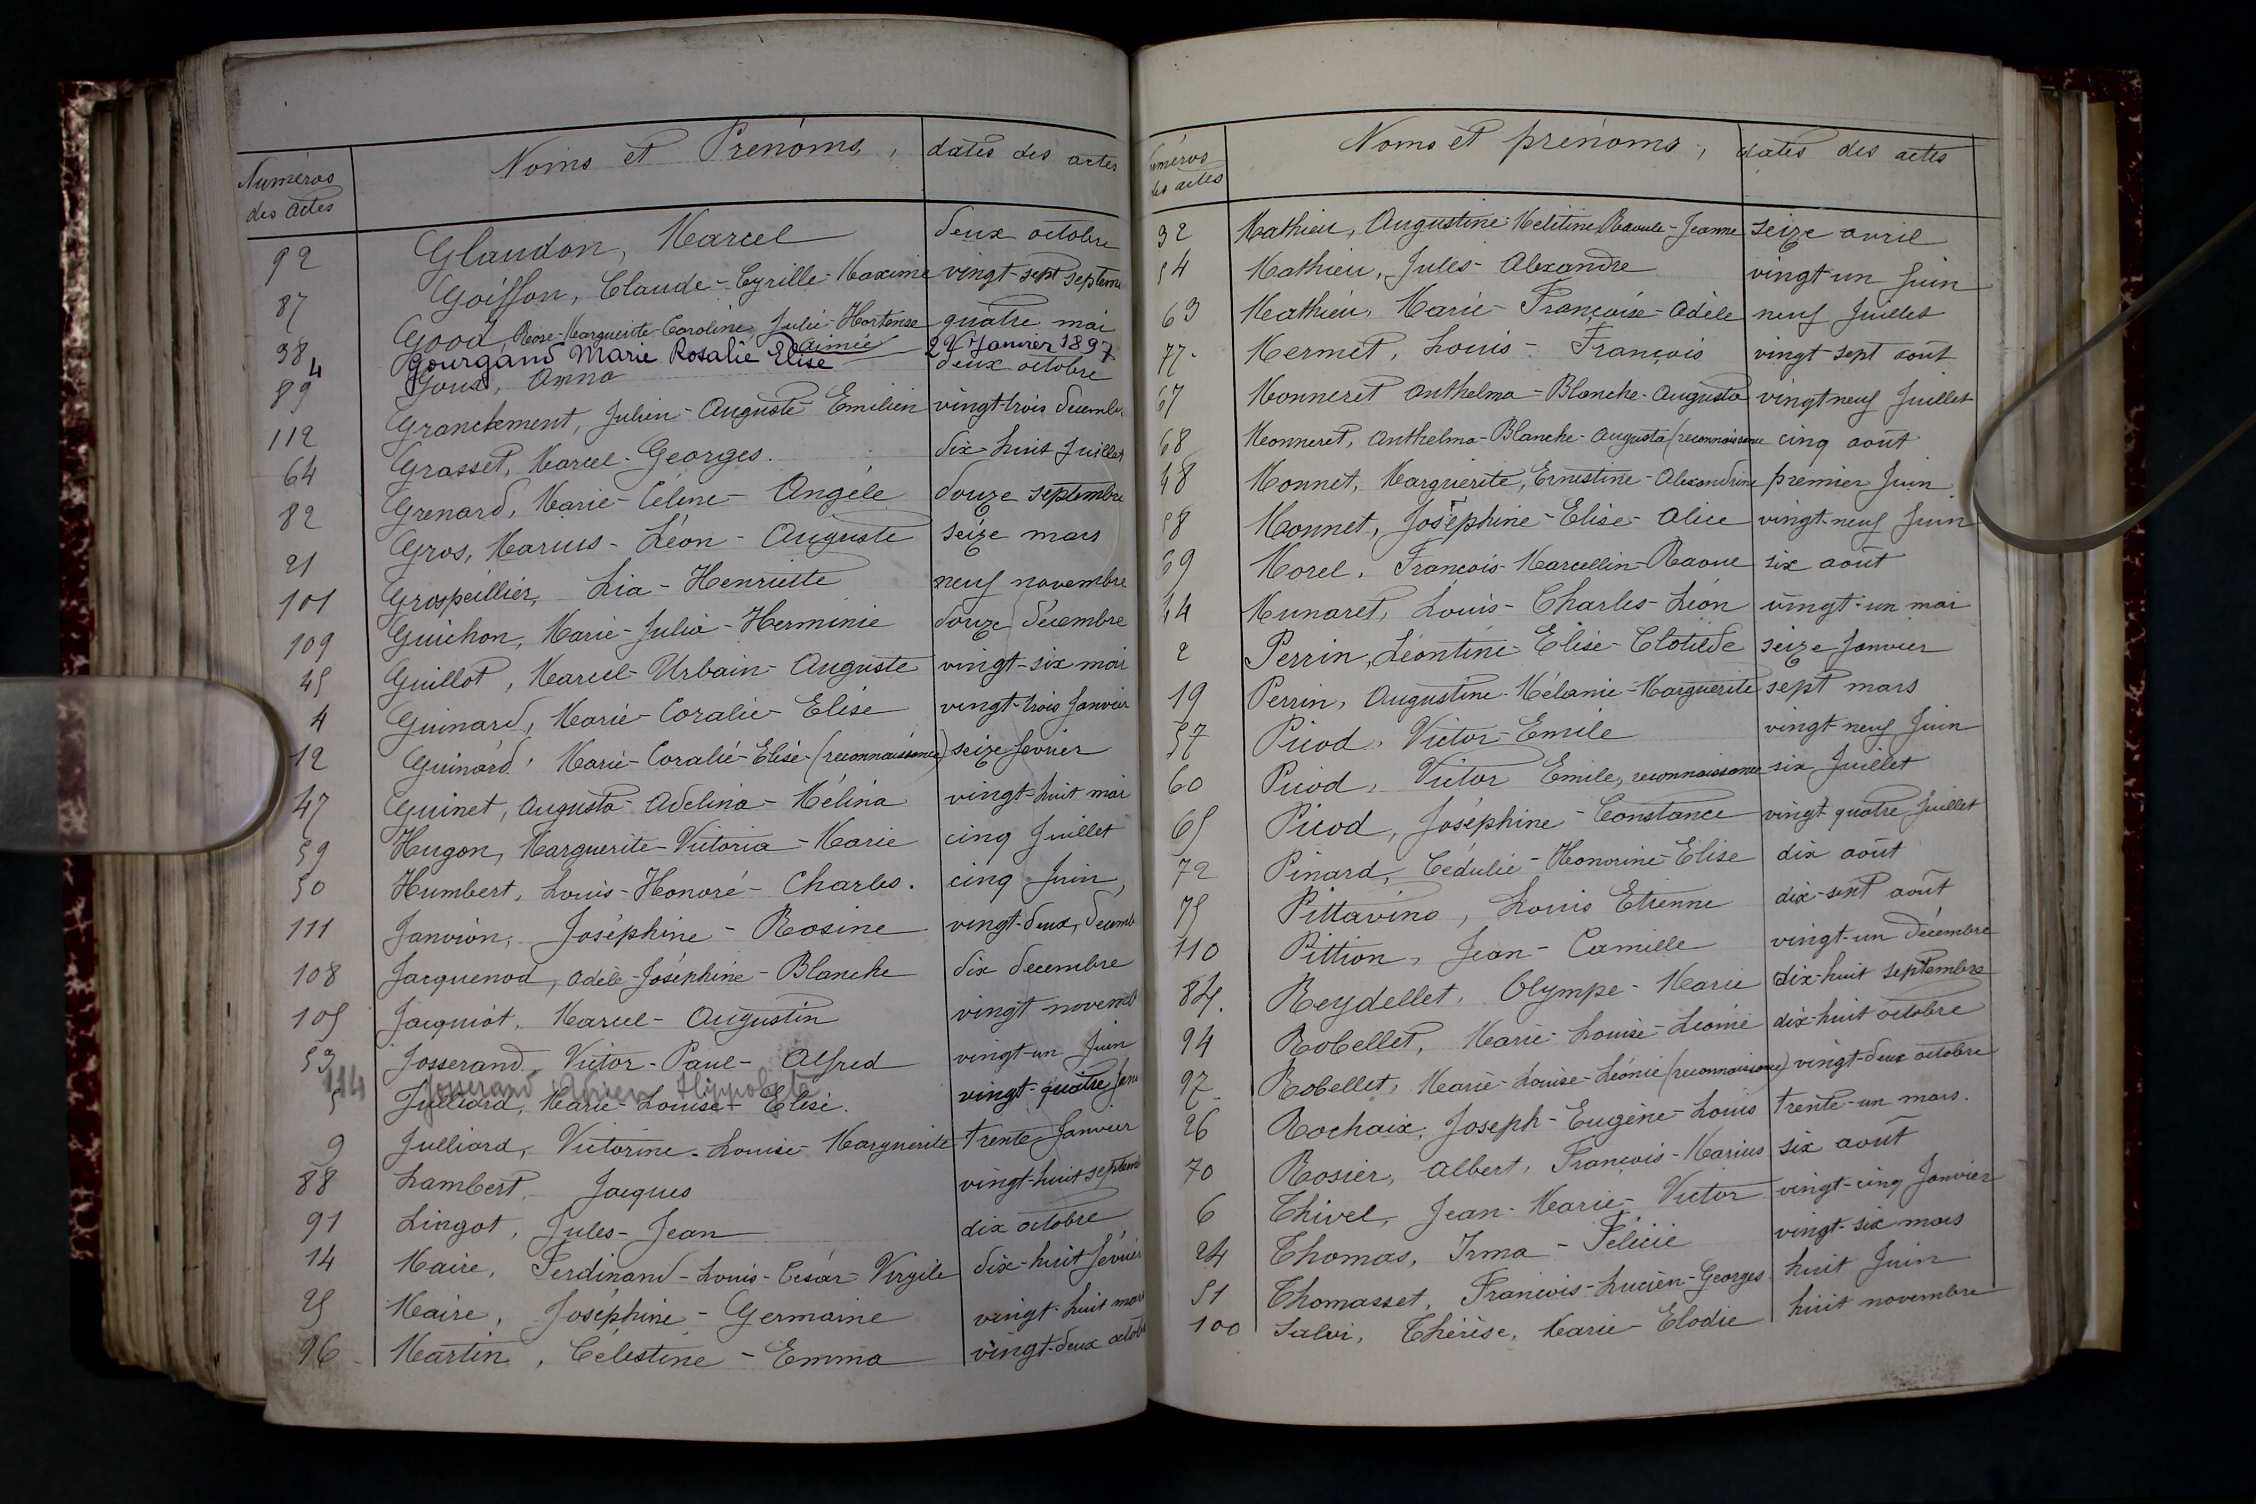 Numéros des actes | Noms et Prénoms, | dates des actes
92 Glaudon, Marcel deux octobre
87 Goiffon, Claude-Cyrille-Maxime vingt-sept septem
38 Good Rose-Marguerite-Caroline Julie-Hortense quatre mai
Aimée
4 Gourgand Marie Rosalie Elise Janvier 1897
89 Anna deux octobre
112 Granclement, Julien-Auguste-Emilien vingt-trois décemb
64 Grasset, Marcel-Georges. dix-huit Juillet
82 Grenard, Marie-Céline-Angèle douze septembre
21 Gros, Marius-Léon-Auguste seize mars
101 Grospeillier, Lia-Henriette neuf novembre
109 Guichon, Marie-Julia-Herminie douze décembre
45 Guillot, Marcel-Urbain-Auguste vingt-six mai
4 Guinard, Marie-Coralie-Elise vingt-trois Janvier
12 Guinard, Marie-Coralie-Elise-(reconnaissance) seize février
47 Guinet, Augusta-Adelina-Mélina vingt-huit mai
59 Hugon, Marguerite-Victoria-Marie cinq Juillet
50 Humbert, Louis-Honoré-Charles. cinq Juin
111 Janvion, Joséphine-Rosine vingt-deux décemb
108 Jacquenod, Adèle-Joséphine-Blanche dix décembre
105 Jacquiot, Marcel-Augustin vingt novemb
53 Josserand, Victor-Paul-Alfred vingt-un Juin
114 Josserand Adrien Hippolyte
5 Julliard, Marie-Louise-Elise. vingt-quatre Janv
9 Julliard, Victorine-Louise-Marguerite trente Janvier
88 Lambert, Jacques vingt-huit septemb
91 Lingot, Jules-Jean dix octobre
14 Maire, Ferdinand-Louis-César-Virgile dix-huit février
25 Maire, Joséphine-Germaine vingt-huit mars
96 Martin, Célestine-Emma vingt-deux octob
Numéros des actes | Noms et prénoms, | dates des actes
32 Mathieu, Augustine-Mélitine Raoule-Jeanne seize avril
54 Mathieu, Jules-Alexandre vingt-un Juin
63 Mathieu, Marie-Françoise-Adèle neuf Juillet
77 Mermet, Louis-François vingt-sept août
67 Monneret Anthelma-Blanche-Augusta vingt neuf Juillet
68 Monneret, Anthelma-Blanche-Augusta (reconnaissance cinq août
48 Monnet, Marguerite, Ernestine-Alexandrine premier Juin
58 Monnet, Joséphine-Elise-Alice vingt-neuf Juin
69 Morel, François-Marcellin-Raoul six août
44 Munaret, Louis-Charles-Léon vingt-un mai
2 Perrin, Léontine-Elise-Clotilde seize Janvier
19 Perrin, Augustine-Mélanie-Marguerite sept mars
57 Picod, Victor-Emile vingt neuf Juin
60 Picod, Victor Emile, reconnaissance six Juillet
65 Picod, Joséphine-Constance vingt quatre Juillet
72 Pinard, Cédulie-Honorine-Elise dix août
75 Pittavino, Louis Etienne dix-sept août
110 Pittion, Jean-Camille vingt-un décembre
84. Reydellet, Olympe-Marie dix-huit septembre
94 Robellet, Marie-Louise-Léonie dix-huit octobre
97 Robellet, Marie-Louise-Léonie (reconnaissance) vingt-deux octobre
26 Rochaix, Joseph-Eugène-Louis trente-un mars.
70 Rosier, Albert, François-Marius six août
6 Thivel, Jean-Marie-Victor vingt-cinq Janvier
24 Thomas, Irma-Félicie vingt-six mars
51 Thomasset, François-Lucien-Georges huit Juin
100 Salvi, Thérèse, Marie-Elodie huit novembre